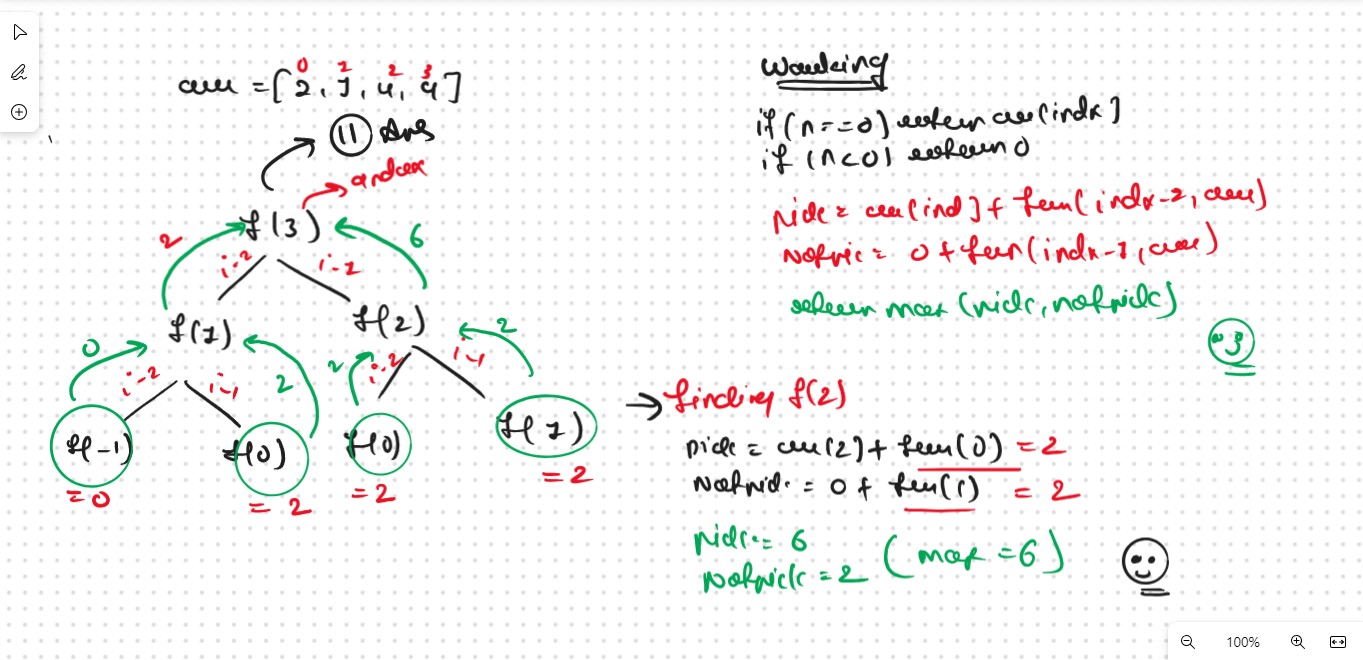 arr = [2, 1, 4, 9]
0 1 2 3
11 Ans
index
f(3)
2
6
i-2
i-1
f(1)
f(2)
0
2
2
2
i-2
i-1
i-2
i-1
f(-1)
f(0)
f(0)
f(1)
= 0
= 2
= 2
= 2
Working
if (n==0) return arr[indx]
if (n<0) return 0
pick = arr[ind] + fun(indx-2, arr)
notpic = 0 + fun(indx-1, arr)
return max (pick, notpick)
→ finding f(2)
pick = arr[2] + fun(0) = 2
Notpick = 0 + fun(1) = 2
pick = 6
Notpick = 2 (max = 6)
100%